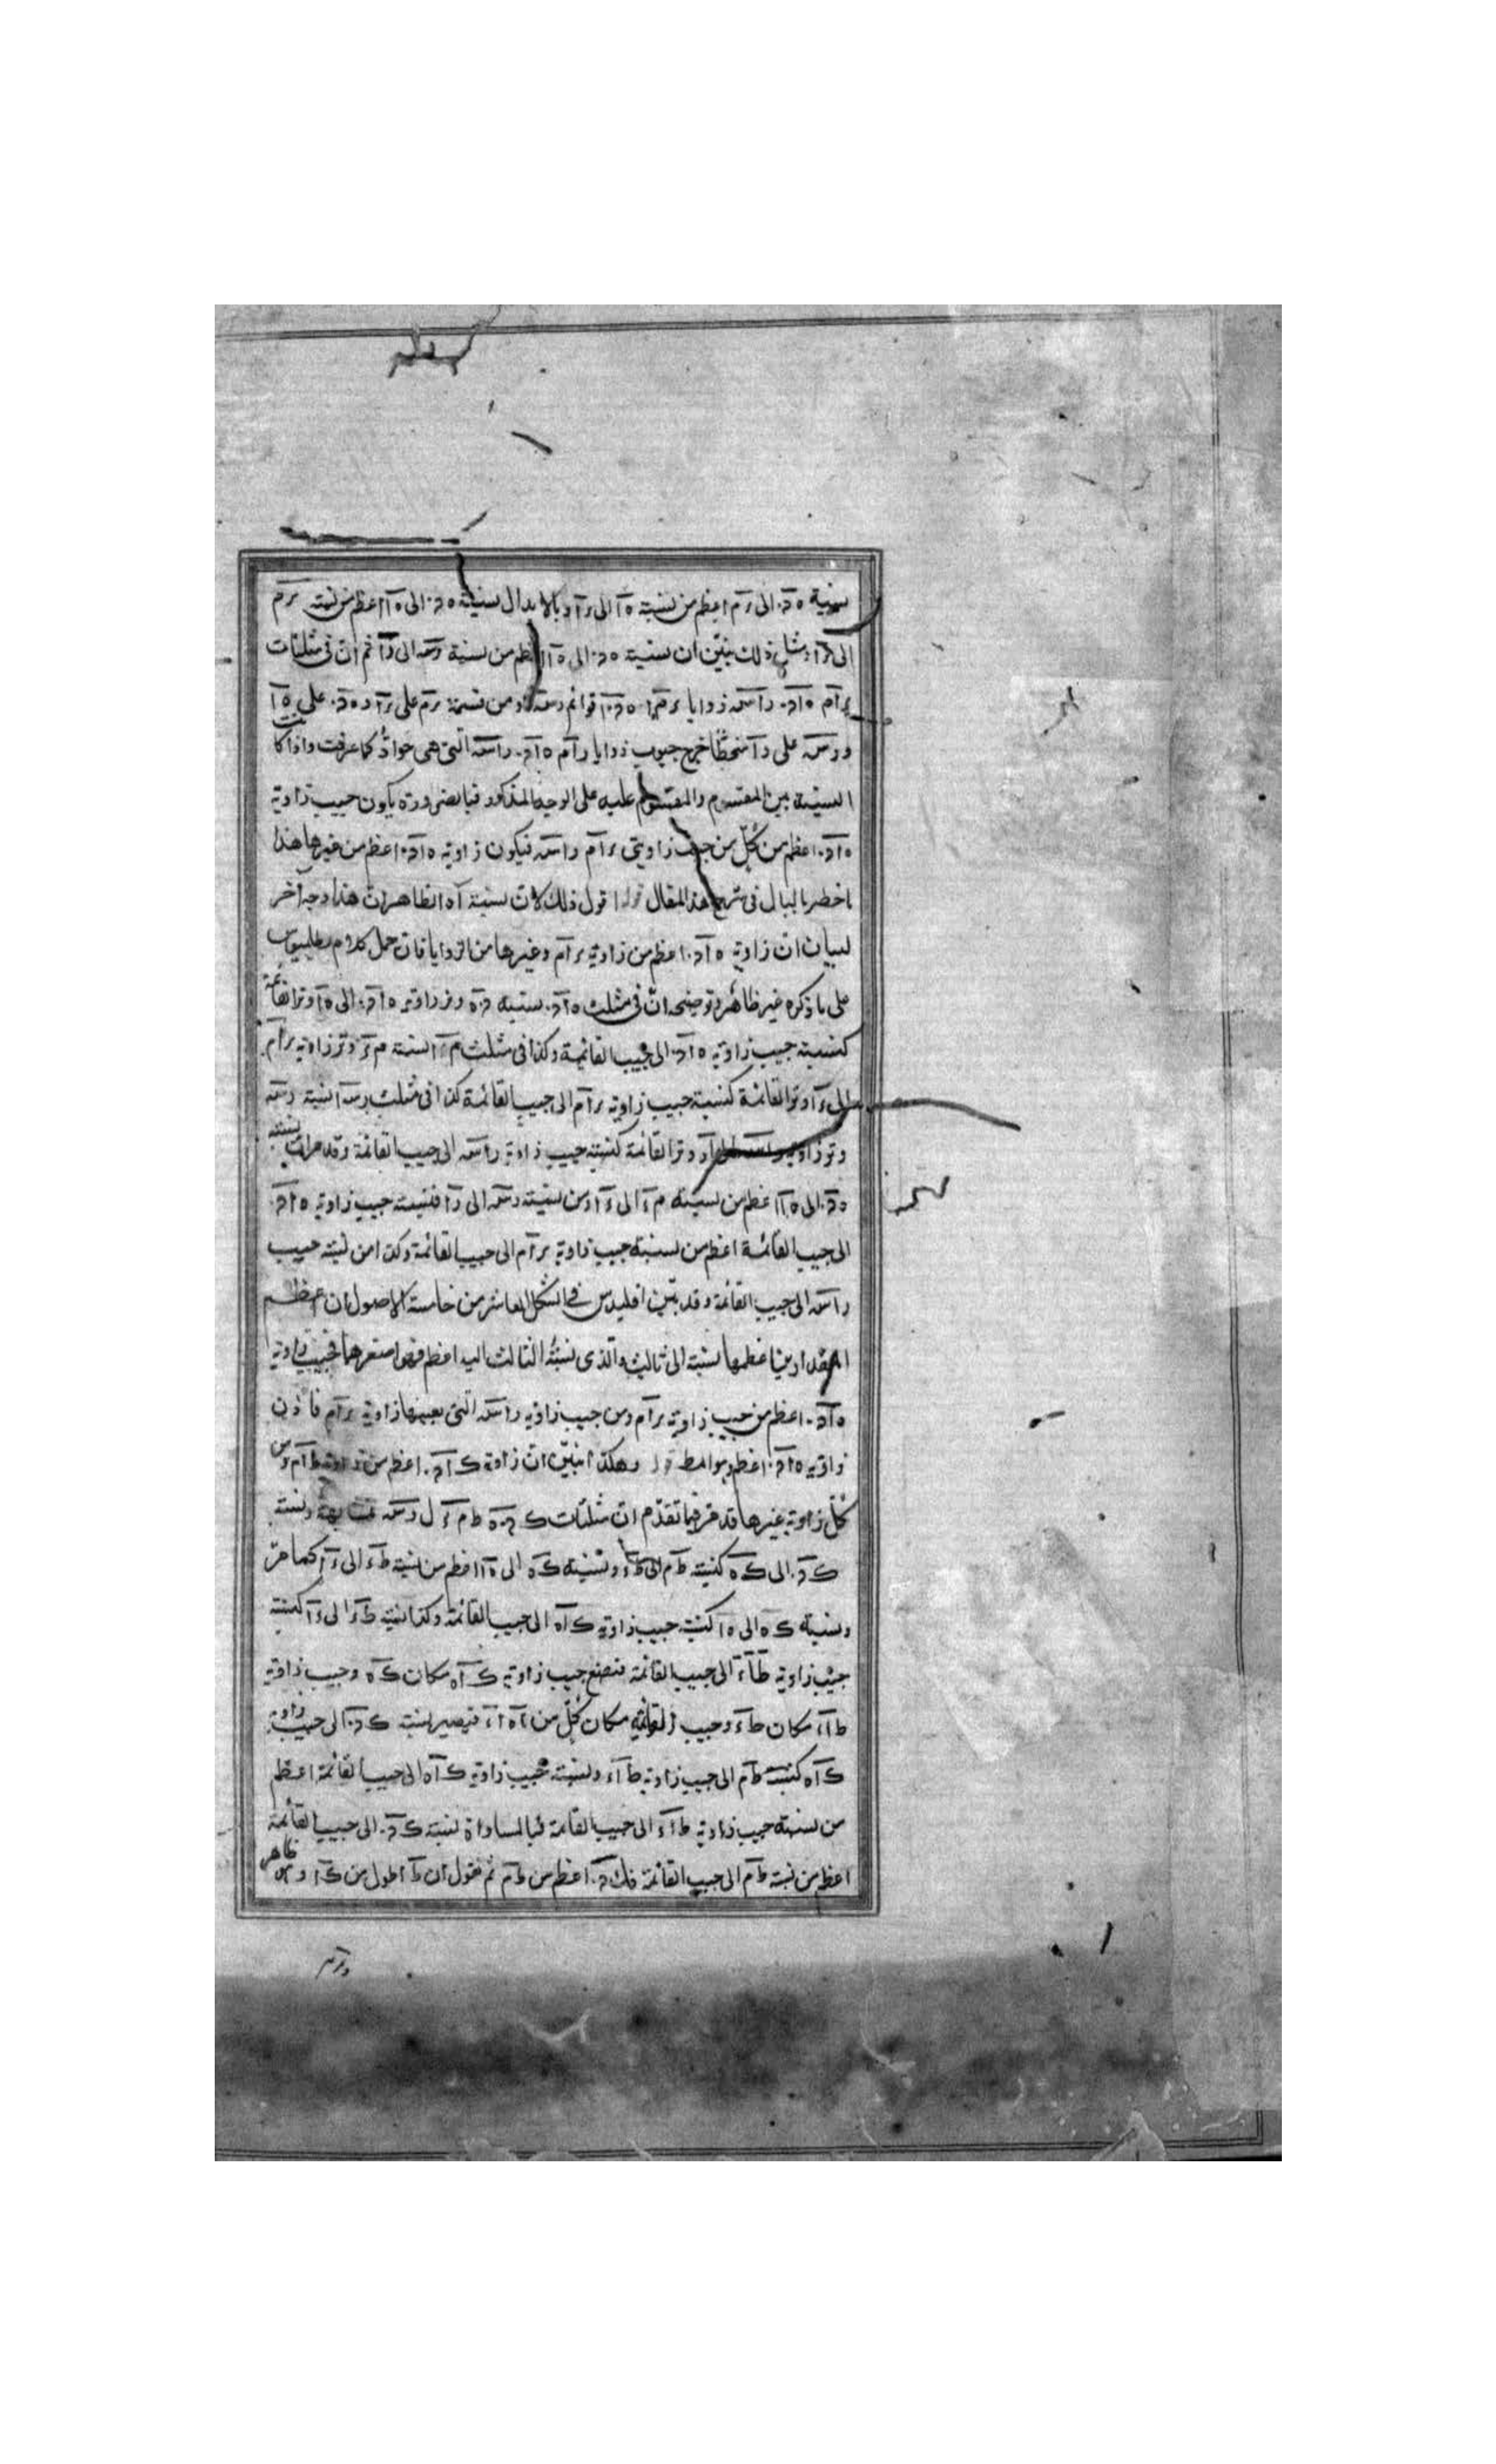 نسبة ه د الى ر م اعظم من نسبة ه ا الى ر ا وبالابدال نسبة ه د الى ه ا اعظم من نسبة ر م
الى ر ا ومثل ذلك نبيّن ان نسبة ه د الى ه ا اعظم من نسبة رسه الى را ثم ان فى مثلثات
ر ا م ه ا د راسه زوايا قوائم ومن قسمة ر م على ر ا و ه د على ه ا
ورسه على را منحطّا خرج جيوب زوايا ر ا م ه ا د راسه التى هى حوادّ كما عرفت واذا كانت
النسبة بين المقسوم والمقسوم عليه على الوجه المذكور فبالضرورة يكون جيب زاوية
ه ا د اعظم من كلّ من جيب زاويتى ر ا م راسه فيكون زاوية ه ا د اعظم من غيرها هذا
ما خطر بالبال فى شرح هذا المقال قوله اقول ذلك لان نسبة ا ه الظاهر ان هذا وجه آخر
لبيان ان زاوية ه ا د اعظم من زاوية ر ا م وغيرها من الزوايا فان حمل كلام بطلميوس
على ما ذكره غير ظاهر وتوضيحه انّ فى مثلث ه ا د نسبة د ه وتر زاوية ه ا د الى ه ا وتر القائمة
كنسبة جيب زاوية ه ا د الى جيب القائمة وكذا فى مثلث نسبة م ر وتر زاوية ر ا م
الى ر ا وتر القائمة كنسبة جيب زاوية ر ا م الى جيب القائمة كذا فى مثلث رسه ا نسبة رسه
وتر زاوية راسه الى را وتر القائمة كنسبة جيب زاوية راسه الى جيب القائمة وقد مر ان نسبة
ه د الى ه ا اعظم من نسبة م ر الى ر ا ومن نسبة رسه الى را فنسبة جيب زاوية ه ا د
الى جيب القائمة اعظم من نسبة جيب زاوية ر ا م الى جيب القائمة وكذا من نسبة جيب
راسه الى جيب القائمة وقد بيّن اقليدس فى الشكل العاشر من خامسة الاصول ان اعظم
المقدارين اعظمهما نسبة الى ثالث والذى نسبة الثالث اليه اعظم فهو اصغرهما فجيب زاوية
ه ا د اعظم من جيب زاوية ر ا م ومن جيب زاوية راسه التى بعينها زاوية ر ا م فاذن
زاوية ه ا د اعظم وهو المط قوله وهكذا نبيّن انّ زاوية ك ا د اعظم من زاوية ط ا م ومن
كلّ زاوية غيرها قد مرّ فيما تقدّم انّ مثلثات ك د ه ط م ر ل رسه متشابهة ونسبة
ك د الى ك ه كنسبة ط م الى ط ر ونسبة ك ه الى ه ا اعظم من نسبة ط ر الى ر ا كما مرّ
ونسبة ك ه الى ه ا كنسبة جيب زاوية ك ا ه الى جيب القائمة وكذا نسبة ط ر الى ر ا كنسبة
جيب زاوية ط ا ر الى جيب القائمة فنضع جيب زاوية ك ا ه مكان ك ه وجيب زاوية
ط ا ر مكان ط ر وجيب القائمة مكان كلّ من ا ه ا ر فيصير نسبة ك د الى جيب زاوية
ك ا ه كنسبة ط م الى جيب زاوية ط ا ر ونسبة جيب زاوية ك ا ه الى جيب القائمة اعظم
من نسبة جيب زاوية ط ا ر الى جيب القائمة فبالمساواة نسبة ك د الى جيب القائمة
اعظم من نسبة ط م الى جيب القائمة فك د اعظم من ط م ثم نقول ان ط ا اطول من ك ا وهو ظاهر